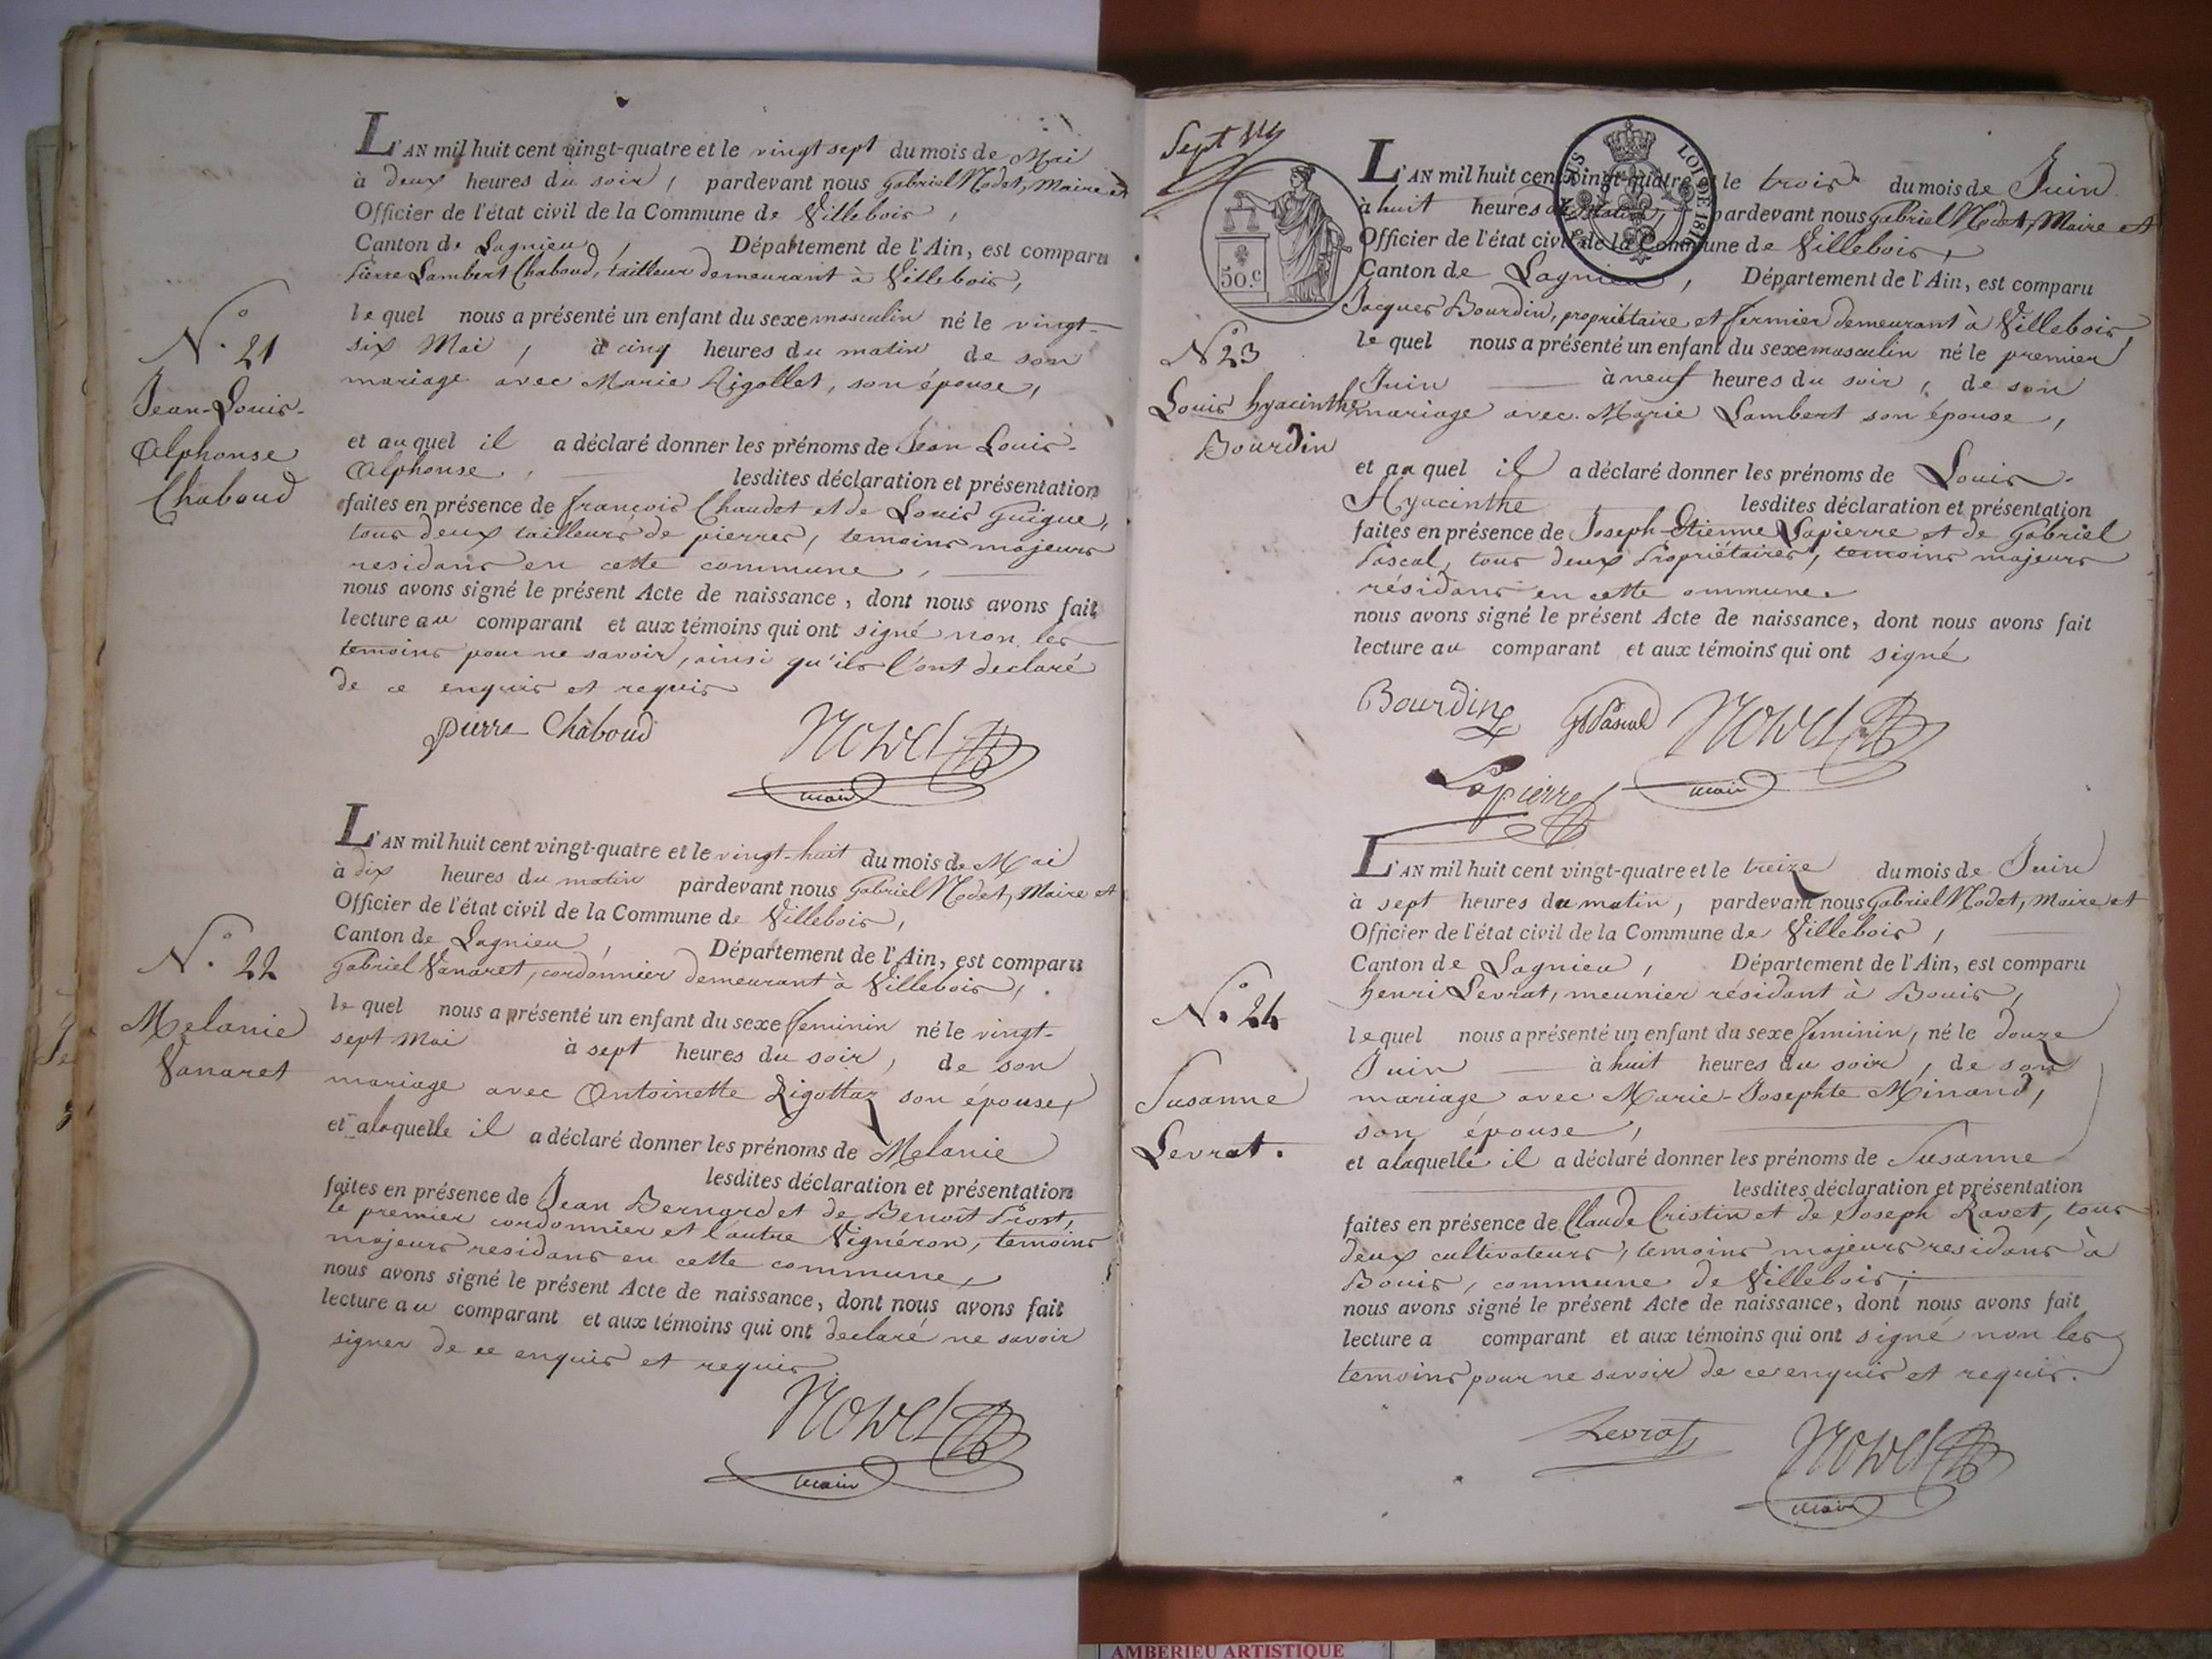 L'AN mil huit cent vingt-quatre et le vingt sept du mois de Mai
à deux heures du soir, pardevant nous Gabriel Nodet, Maire et
Officier de l'état civil de la Commune de Villebois,
Canton de Lagnieu, Département de l'Ain, est comparu
Pierre Lambert Chaboud, tailleur demeurant à Villebois,
le quel nous a présenté un enfant du sexe masculin né le vingt-
six Mai, à cinq heures du matin de son
mariage avec Marie Rigollet, son épouse,
et au quel il a déclaré donner les prénoms de Jean Louis-
Alphonse, lesdites déclaration et présentation
faites en présence de françois Chaudet et de Louis Guigue,
tous deux tailleurs de pierres, temoins majeurs
residans en cette commune,
nous avons signé le présent Acte de naissance, dont nous avons fait
lecture au comparant et aux témoins qui ont signé non les
temoins pour ne savoir, ainsi qu'ils l'ont declaré
de ce enquis et requis
pierre Chaboud
maire
N.° 21
Jean-Louis-
Alphonse
Chaboud
L'AN mil huit cent vingt-quatre et le vingt-huit du mois de Mai
à dix heures du matin pardevant nous Gabriel Nodet, Maire et
Officier de l'état civil de la Commune de Villebois,
Canton de Lagnieu, Département de l'Ain, est comparu
Gabriel Vanaret, cordonnier demeurant à Villebois,
le quel nous a présenté un enfant du sexe feminin né le vingt-
sept Mai à sept heures du soir, de son
mariage avec Antoinette Rigottaz son épouse,
et à laquelle il a déclaré donner les prénoms de Melanie
lesdites déclaration et présentation
faites en présence de Jean Bernard et de Benoît Prost,
le premier cordonnier et l'autre Vignéron, temoins
majeurs residans en cette commune,
nous avons signé le présent Acte de naissance, dont nous avons fait
lecture au comparant et aux témoins qui ont declaré ne savoir
signer de ce enquis et requis
maire
N.° 22
Melanie
Vanaret
Sept
50.c
LOI DE 1816
L'AN mil huit cent vingt-quatre et le trois du mois de Juin
à huit heures du matin, pardevant nous Gabriel Nodet, Maire et
Officier de l'état civil de la Commune de Villebois,
Canton de Lagnieu, Département de l'Ain, est comparu
Jacques Bourdin, propriétaire et fermier demeurant à Villebois,
le quel nous a présenté un enfant du sexe masculin né le premier
Juin à neuf heures du soir, de son
mariage avec Marie Lambert son épouse,
et au quel il a déclaré donner les prénoms de Louis-
Hyacinthe lesdites déclaration et présentation
faites en présence de Joseph-Etienne Lapierre et de Gabriel
Pascal, tous deux Propriétaires, temoins majeurs
résidans en cette ommune
nous avons signé le présent Acte de naissance, dont nous avons fait
lecture au comparant et aux témoins qui ont signé
Bourdin Pascal
Lapierre maire
N° 23
Louis hyacinthe
Bourdin
L'AN mil huit cent vingt-quatre et le treize du mois de Juin
à sept heures du matin, pardevant nous Gabriel Nodet, Maire et
Officier de l'état civil de la Commune de Villebois,
Canton de Lagnieu, Département de l'Ain, est comparu
henri Levrat, meunier résidant à Bouis,
le quel nous a présenté un enfant du sexe feminin, né le douze
Juin à huit heures du soir, de son
mariage avec Marie-Josephte Minand,
son épouse,
et a laquelle il a déclaré donner les prénoms de Susanne
lesdites déclaration et présentation
faites en présence de Claude Cristin et de Joseph Ravet, tous
deux cultivateurs, temoins majeurs residans à
Bouis, commune de Villebois;
nous avons signé le présent Acte de naissance, dont nous avons fait
lecture a comparant et aux témoins qui ont signé non les
temoins pour ne savoir de ce enquis et requis.
Levrat
maire
N.° 24
Susanne
Levrat.
AMBERIEU ARTISTIQUE